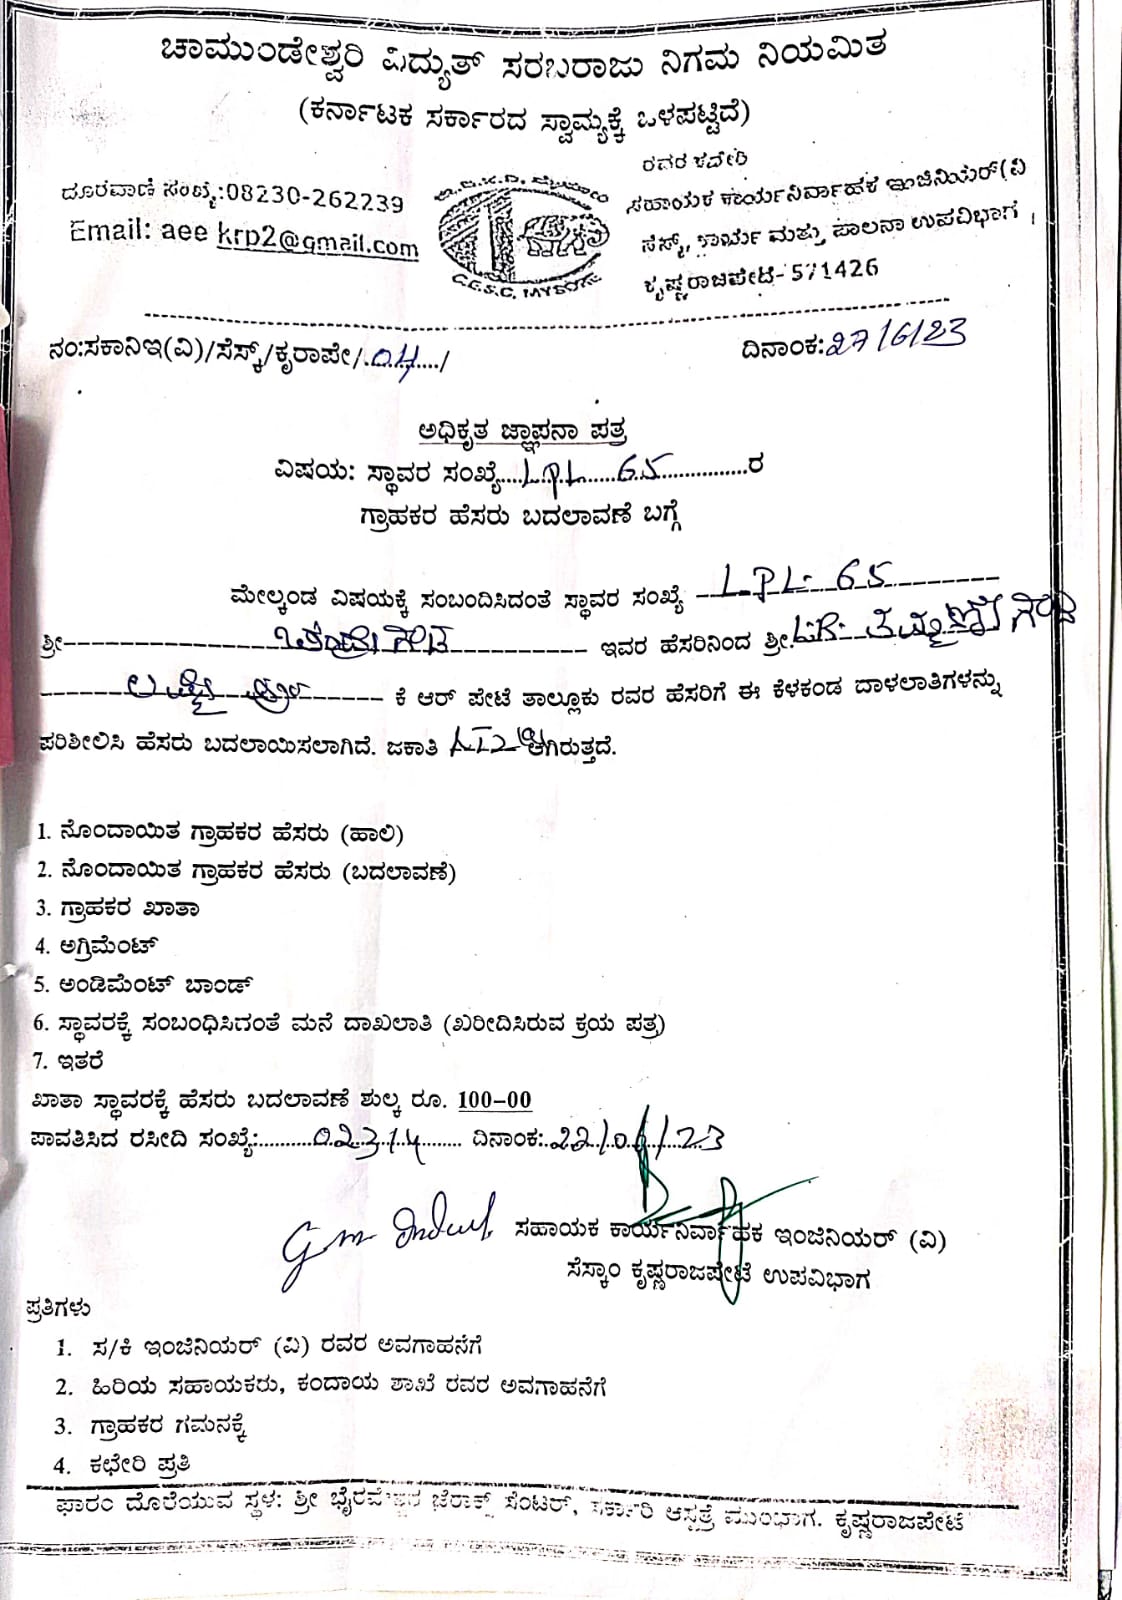 ಚಾಮುಂಡೇಶ್ವರಿ ವಿದ್ಯುತ್ ಸರಬರಾಜು ನಿಗಮ ನಿಯಮಿತ
(ಕರ್ನಾಟಕ ಸರ್ಕಾರದ ಸ್ವಾಮ್ಯಕ್ಕೆ ಒಳಪಟ್ಟಿದೆ)
ದೂರವಾಣಿ ಸಂಖ್ಯೆ:08230-262239
Email: aee krp2@gmail.com
C.E.S.C. MYSORE
ರವರ ಕಚೇರಿ
ಸಹಾಯಕ ಕಾರ್ಯನಿರ್ವಾಹಕ ಇಂಜಿನಿಯರ್(ವಿ
ಸೆಸ್ಕ್, ಕಾರ್ಯ ಮತ್ತು ಪಾಲನಾ ಉಪವಿಭಾಗ ,
ಕೃಷ್ಣರಾಜಪೇಟೆ-571426
ನಂ:ಸಕಾನಿಇ(ವಿ)/ಸೆಸ್ಕ್/ಕೃರಾಪೇ/.04..../
ದಿನಾಂಕ:27/6/23
ಅಧಿಕೃತ ಜ್ಞಾಪನಾ ಪತ್ರ
ವಿಷಯ: ಸ್ಥಾವರ ಸಂಖ್ಯೆ....LPL.....65..............ರ
ಗ್ರಾಹಕರ ಹೆಸರು ಬದಲಾವಣೆ ಬಗ್ಗೆ
ಮೇಲ್ಕಂಡ ವಿಷಯಕ್ಕೆ ಸಂಬಂದಿಸಿದಂತೆ ಸ್ಥಾವರ ಸಂಖ್ಯೆ LPL- 65
ಶ್ರೀ ಇವರ ಹೆಸರಿನಿಂದ ಶ್ರೀ.
ಕೆ ಆರ್ ಪೇಟೆ ತಾಲ್ಲೂಕು ರವರ ಹೆಸರಿಗೆ ಈ ಕೆಳಕಂಡ ದಾಳಲಾತಿಗಳನ್ನು
ಪರಿಶೀಲಿಸಿ ಹೆಸರು ಬದಲಾಯಿಸಲಾಗಿದೆ. ಜಕಾತಿ ಆಗಿರುತ್ತದೆ.
1. ನೊಂದಾಯಿತ ಗ್ರಾಹಕರ ಹೆಸರು (ಹಾಲಿ)
2. ನೊಂದಾಯಿತ ಗ್ರಾಹಕರ ಹೆಸರು (ಬದಲಾವಣೆ)
3. ಗ್ರಾಹಕರ ಖಾತಾ
4. ಅಗ್ರಿಮೆಂಟ್
5. ಅಂಡಿಮೆಂಟ್ ಬಾಂಡ್
6. ಸ್ಥಾವರಕ್ಕೆ ಸಂಬಂಧಿಸಿಗಂತೆ ಮನೆ ದಾಖಲಾತಿ (ಖರೀದಿಸಿರುವ ಕ್ರಯ ಪತ್ರ)
7. ಇತರೆ
ಖಾತಾ ಸ್ಥಾವರಕ್ಕೆ ಹೆಸರು ಬದಲಾವಣೆ ಶುಲ್ಕ ರೂ. 100-00
ಪಾವತಿಸಿದ ರಸೀದಿ ಸಂಖ್ಯೆ:..........02314....... ದಿನಾಂಕ:.22/06/23
ಸಹಾಯಕ ಕಾರ್ಯನಿರ್ವಾಹಕ ಇಂಜಿನಿಯರ್ (ವಿ)
ಸೆಸ್ಕಾಂ ಕೃಷ್ಣರಾಜಪೇಟೆ ಉಪವಿಭಾಗ
ಪ್ರತಿಗಳು
1. ಸ/ಕಿ ಇಂಜಿನಿಯರ್ (ವಿ) ರವರ ಅವಗಾಹನೆಗೆ
2. ಹಿರಿಯ ಸಹಾಯಕರು, ಕಂದಾಯ ಶಾಖೆ ರವರ ಅವಗಾಹನೆಗೆ
3. ಗ್ರಾಹಕರ ಗಮನಕ್ಕೆ
4. ಕಛೇರಿ ಪ್ರತಿ
ಫಾರಂ ದೊರೆಯುವ ಸ್ಥಳ: ಶ್ರೀ ಜೆರಾಕ್ಸ್ ಸೆಂಟರ್, ಸರ್ಕಾರಿ ಆಸ್ಪತ್ರೆ ಮುಂಭಾಗ. ಕೃಷ್ಣರಾಜಪೇಟೆ